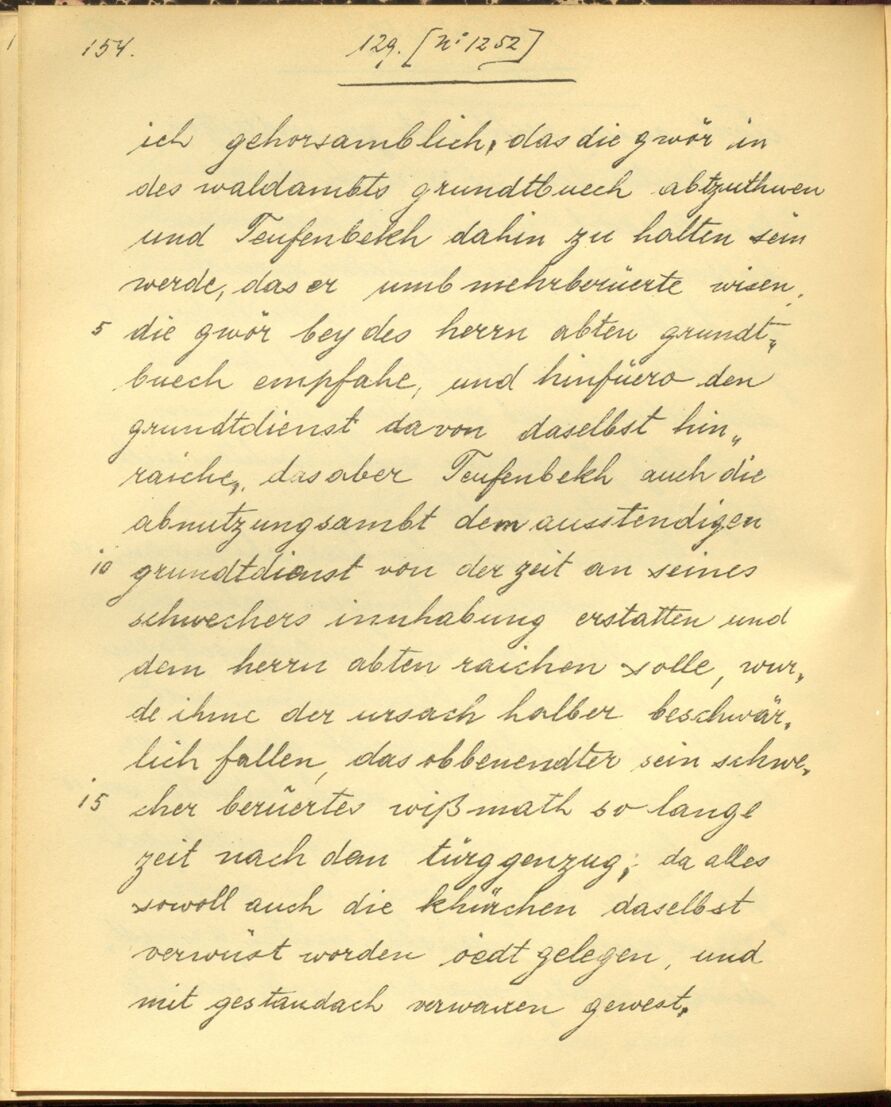 154.
129. [No 1252]
ich gehorsamblich, das die gwör in
des waldambts grundtbuech abtzuthuen
und Teufenbekh dahin zu halten sein
werde, das er umb mehrberüerte wisen,
5 die gwör bey des herrn abten grundt„
buech empfahe, und hinfüero den
grundtdienst davon daselbst hin„
raiche, das aber Teufenbekh auch die
abnutzung sambt dem ausstendigen
10 grundtdienst von der zeit an seines
schwechers innhabung erstatten und
dem herrn abten raichen solle, wur„
de ihme der ursach halber beschwär„
lich fallen, das obbenendter sein schwe„
15 cher berüertes wißmath so lange
zeit nach dem türggenzug; da alles
sowoll auch die khürchen daselbst
verwüst worden öedt gelegen, und
mit gestaudach verwaxen gewest.